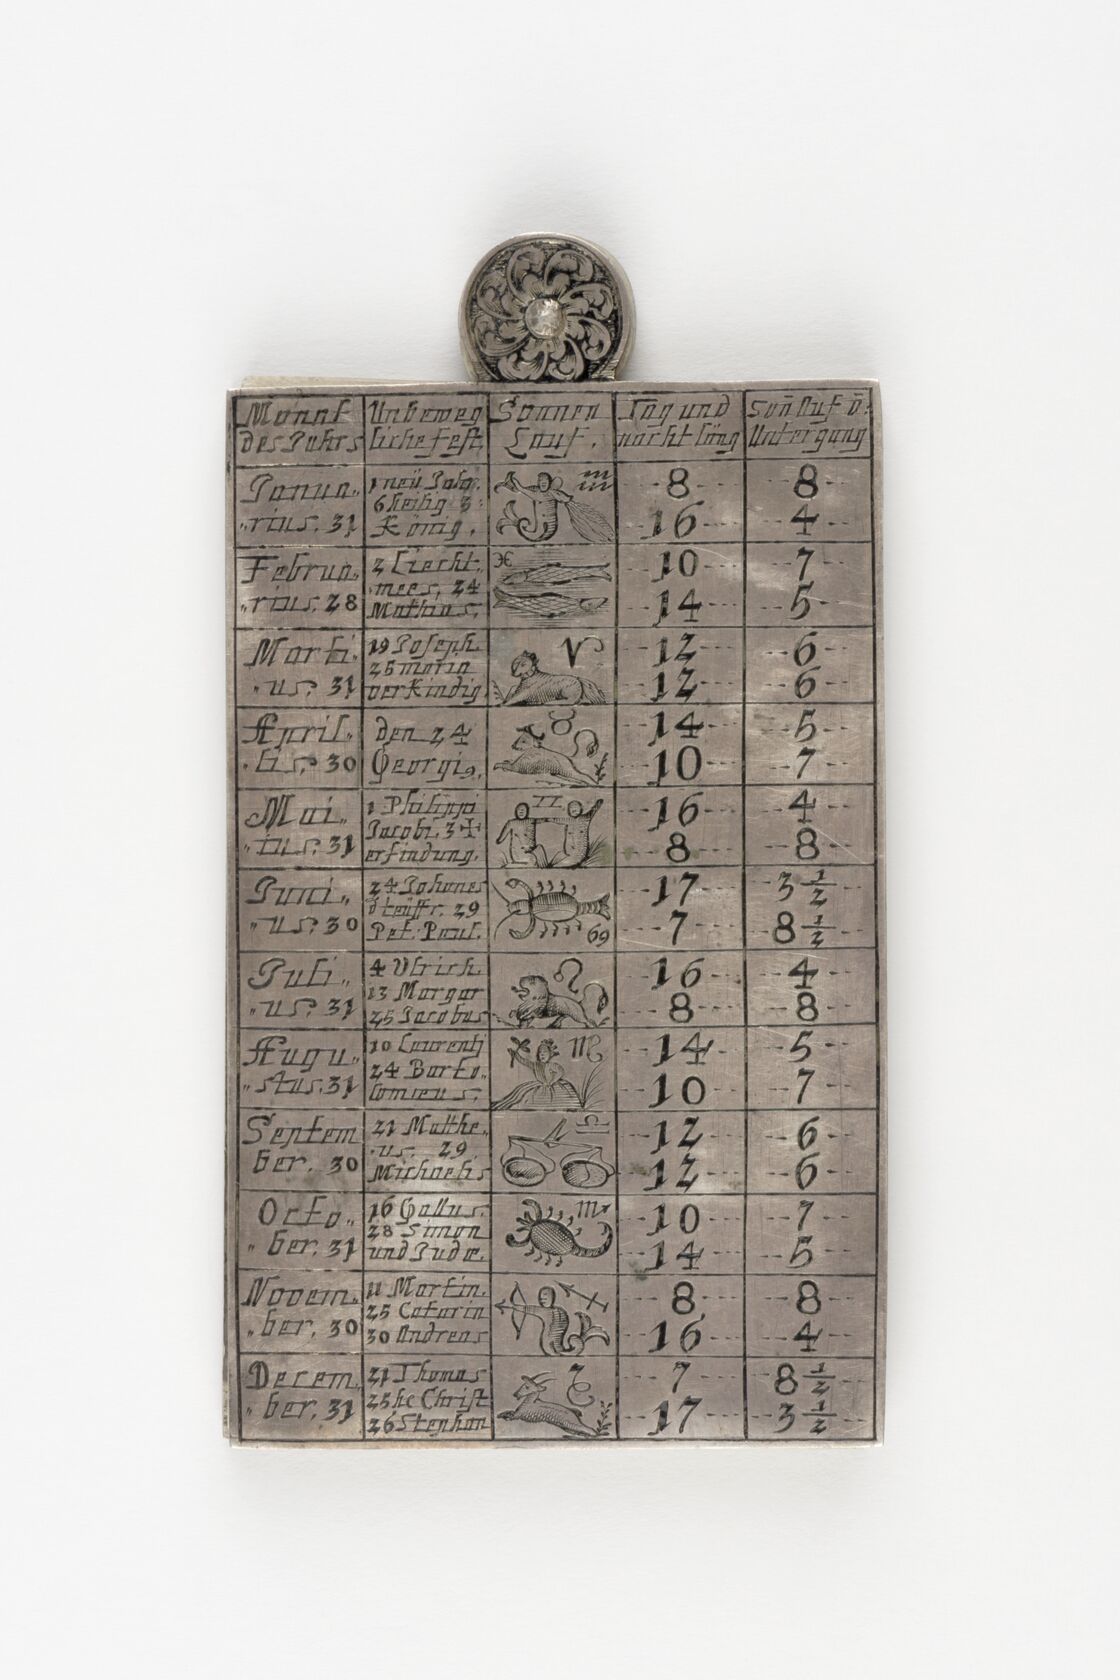 Monat
des Jahrs
Unbeweg
liche Fest,
Sonnen
Lauf.
Tag und
nacht läng
Soñ Auf ū:
Untergang
Janua„
„rius. 31
1 neü Jahr.
6 heilig 3
König.
♒
8
16
8
4
Februa„
„rius. 28
2 Liecht„
mees, 24
Mathias.
♓
10
14
7
5
Marti„
„us: 31
19 Joseph.
25 maria
verkindig
♈
12
12
6
6
April„
„lis. 30
den 24
Georgi9.
♉
14
10
5
7
Mai„
„ius. 31
1 Philippi
Jacobi. 3 ✝
erfindung.
♊
16
8
4
8
Juni„
„us. 30
24 Johanes
d teüffr. 29
Pet: Paul.
♋
17
7
3 1/2
8 1/2
Juli„
„us. 31
4 Ulrich
13 Margar
25 Jacobus
♌
16
8
4
8
Augu„
„stus. 31
10 Laurentj
24 Barto„
lomieus.
♍
14
10
5
7
Septem
ber. 30
21 Mathe„
„us. 29
Michaelis
♎
12
12
6
6
Octo„
„ber. 31
16 Gallus.
28 Simon
und Judæ.
♏
10
14
7
5
Novem„
„ber. 30
11 Martin.
25 Catarin
30 Andreas
♐
8
16
8
4
Decem„
„ber. 31
21 Thomas
25 he Christ
26 Stephan
♑
7
17
8 1/2
3 1/2